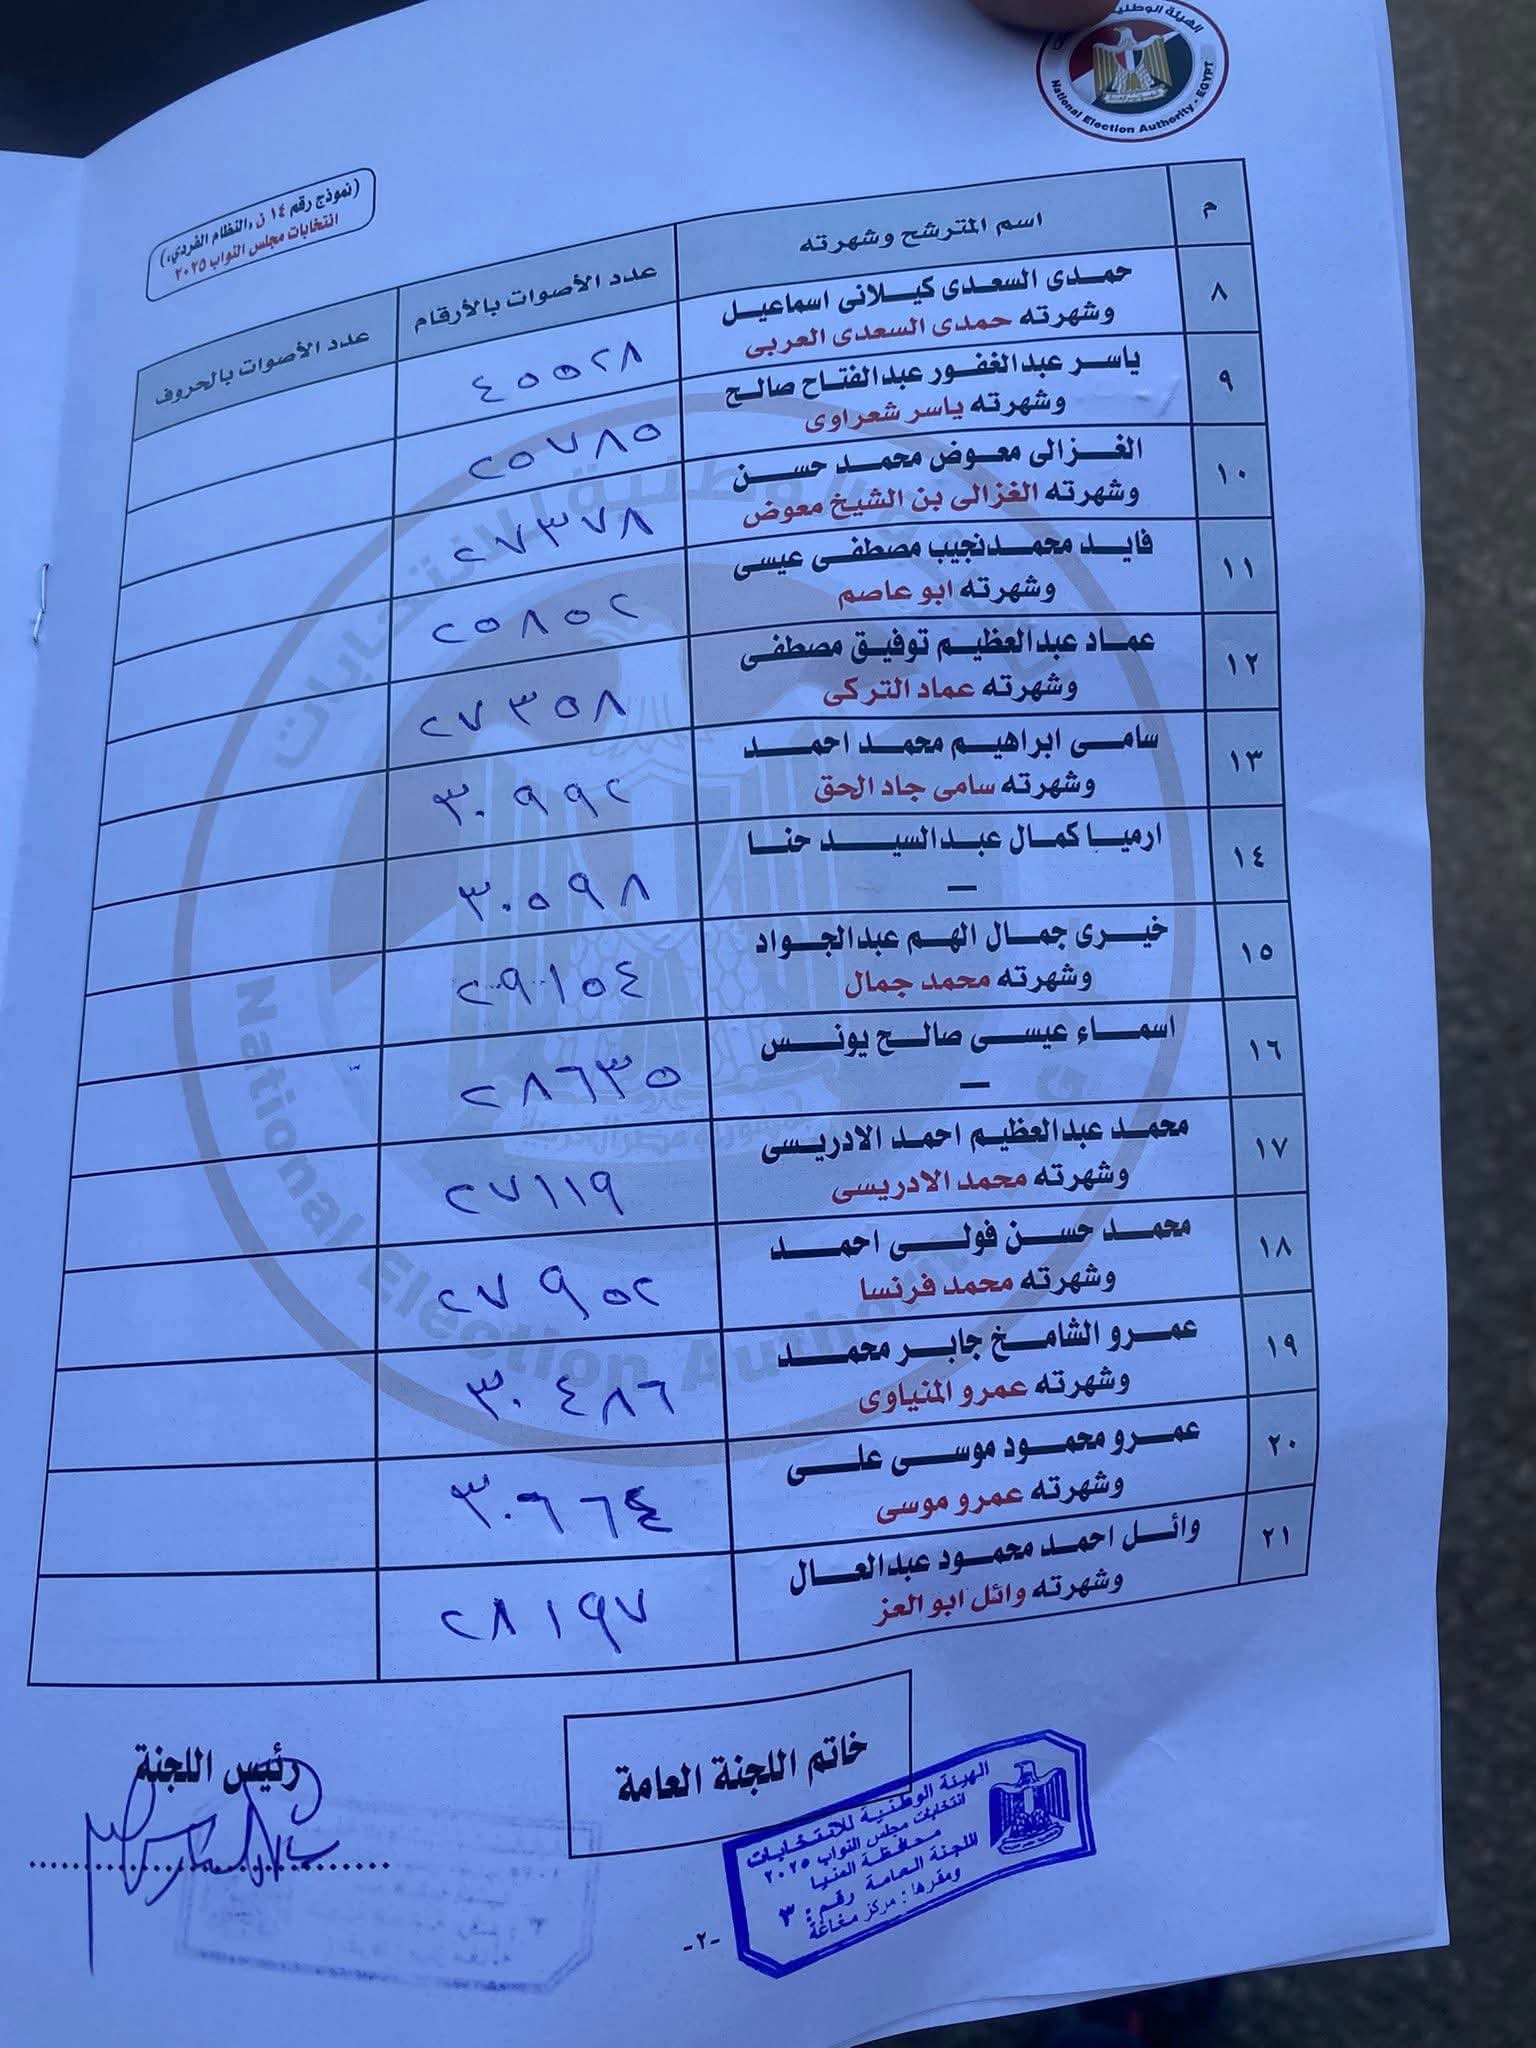 الهيئة الوطنية
National Election Authority - EGYPT
(نموذج رقم ١٤ ن «النظام الفردي»)
انتخابات مجلس النواب ٢٠٢٥
م اسم المترشح وشهرته عدد الأصوات بالأرقام عدد الأصوات بالحروف
٨ حمدى السعدى كيلانى اسماعيل ٤٥٥٢٨
وشهرته حمدى السعدى العربى
٩ ياسر عبدالغفور عبدالفتاح صالح ٢٥٧٨٥
وشهرته ياسر شعراوى
١٠ الغزالى معوض محمد حسن ٢٧٣٧٨
وشهرته الغزالى بن الشيخ معوض
١١ فايد محمدنجيب مصطفى عيسى ٢٥٨٥٢
وشهرته ابو عاصم
١٢ عماد عبدالعظيم توفيق مصطفى ٢٧٣٥٨
وشهرته عماد التركى
١٣ سامى ابراهيم محمد احمد ٣٠٩٩٢
وشهرته سامى جاد الحق
١٤ ارميا كمال عبدالسيد حنا ٣٠٥٩٨
—
١٥ خيرى جمال الهم عبدالجواد ٢٩١٥٤
وشهرته محمد جمال
١٦ اسماء عيسى صالح يونس ٢٨٦٣٥
—
١٧ محمد عبدالعظيم احمد الادريسى ٢٧١١٩
وشهرته محمد الادريسى
١٨ محمد حسن فولى احمد ٢٧٩٥٢
وشهرته محمد فرنسا
١٩ عمرو الشامخ جابر محمد ٣٠٤٨٦
وشهرته عمرو المنياوى
٢٠ عمرو محمود موسى على ٣٠٦٦٤
وشهرته عمرو موسى
٢١ وائل احمد محمود عبدالعال ٢٨١٩٧
وشهرته وائل ابو العز
National Election Authority
خاتم اللجنة العامة
رئيس اللجنة
الهيئة الوطنية للانتخابات
انتخابات مجلس النواب ٢٠٢٥
محافظة المنيا
اللجنة العامة رقم : ٣
ومقرها : مركز مغاغة
-٢-